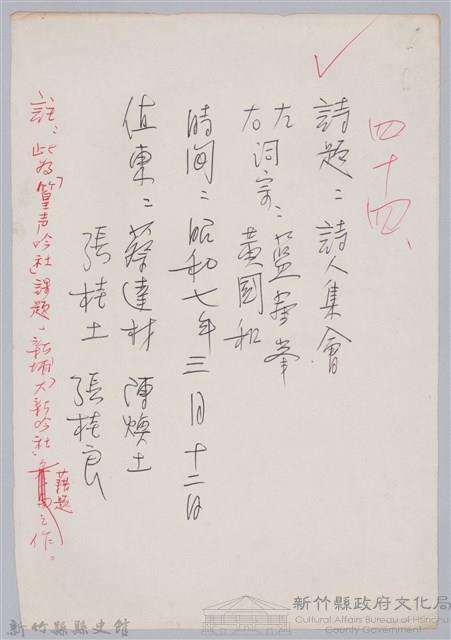 四十四、
詩題:詩人集會
左
右詞宗:藍華峯
黃國和
時間:昭和七年三月十二日
值東:蔡達材 陳煥土
張桂土 張桂良
註:此為「篁声吟社」課題,新埔「大新吟社」
藉題
之作。
新竹縣縣史館
新竹縣政府文化局
Cultural Affairs Bureau of Hsinchu
County Government